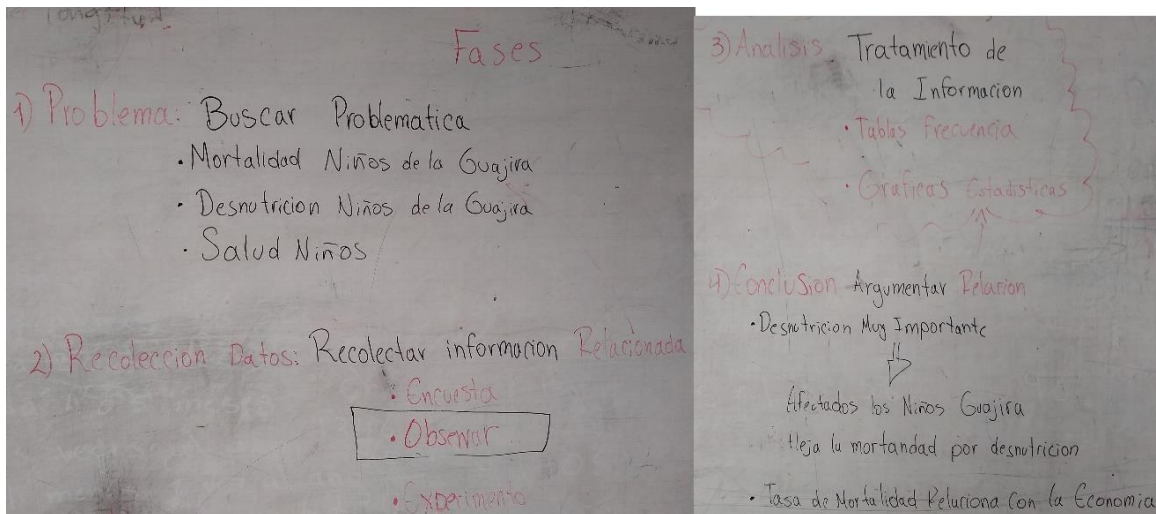 Longitud
Fases
1) Problema: Buscar Problematica
• Mortalidad Niños de la Guajira
• Desnutricion Niños de la Guajira
• Salud Niños
2) Recoleccion Datos: Recolectar informacion Relacionada
• Encuesta
• Observar
• Experimento
3) Analisis Tratamiento de
la Informacion
• Tablas Frecuencia
• Graficas Estadisticas
4) Conclusion Argumentar Relacion
• Desnutricion Muy Importante
Afectados los Niños Guajira
la mortandad por desnutricion
• Tasa de Mortalidad Relaciona Con la Economia